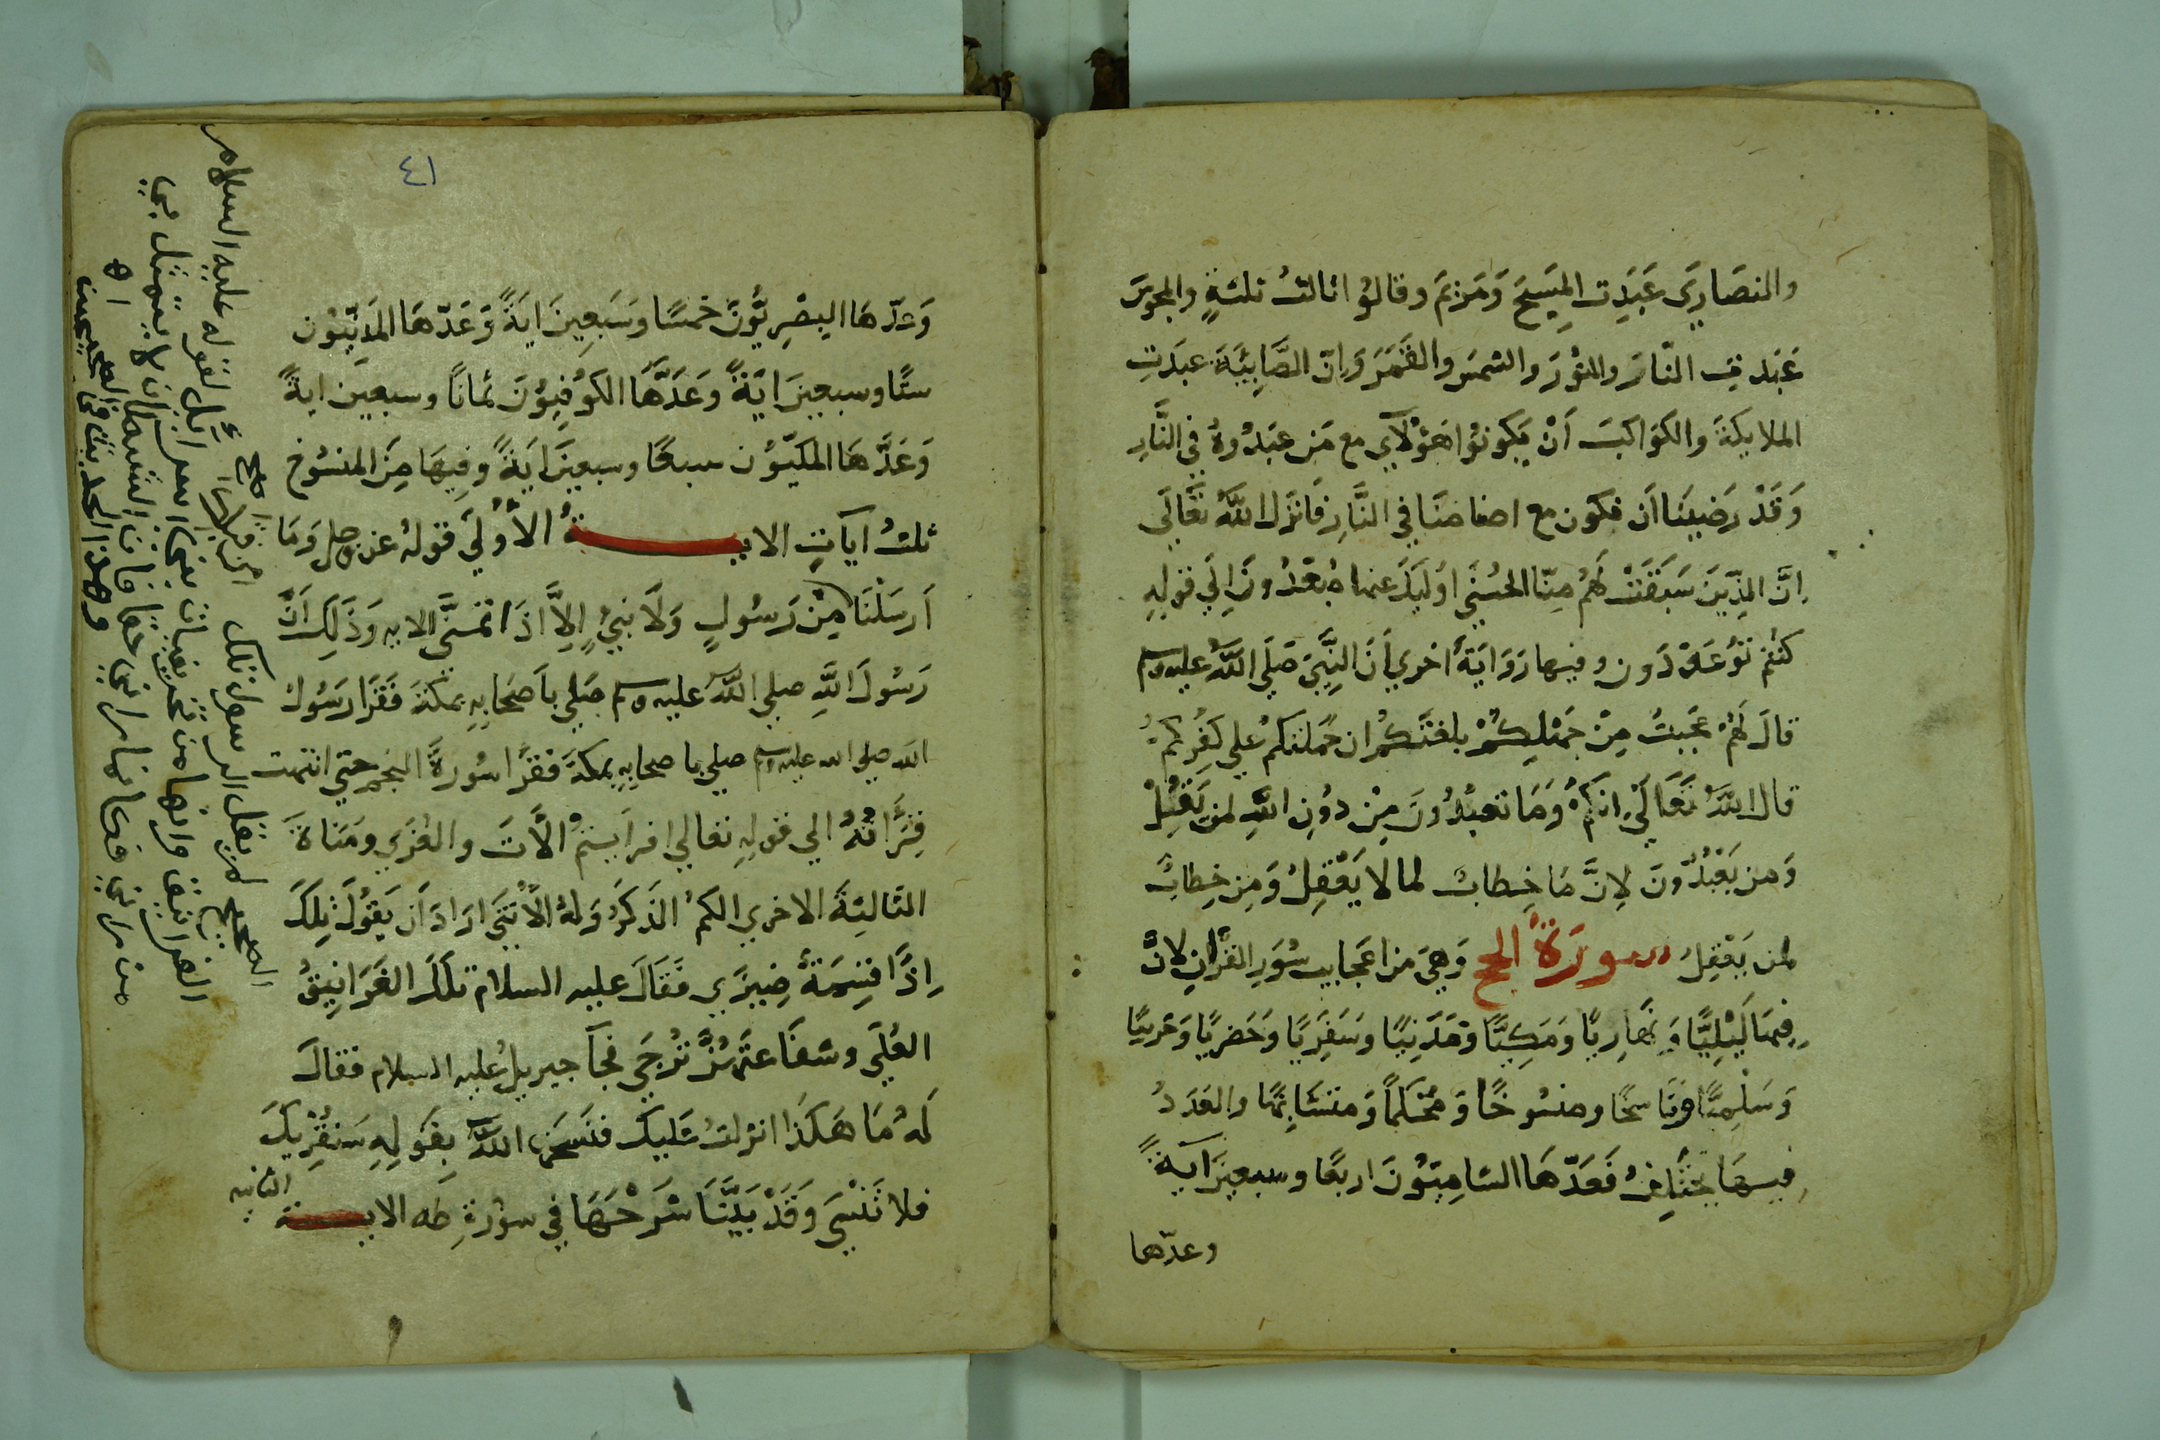 والنصَارَى عَبَدِت المِسَيحَ وَمَريَمَ وقالوُا ثالثُ ثلثةٍ والمجوسَ
عَبَدت النّارَ والنوُرَ والشمسَ والقمَرَ وَانّ الصَّابِئيَةَ عبَدَتِ
الملايكةَ والكوَاكبَ اَنْ يَكونوُا هَوْلآي مع مَن عبَدْوهُ في النَّارِ
وَقَدْ رَضيِنَا اَن نكون مع اصنامنَا في النَّارِ فَانزَل اللَّهُ تَعَّالَي
اِنَّ الذِّينَ سَبَقَتْ لَهُمْ مِنّا الحُسْنَي اوُلَيكَ عنها مُبعَدُونَ اِلَي قولِهِ
كنتُمْ توُعَدُون وفيها رَوَايَةٌ اخري اَنَ النِبَّيَ صَلَي اللَّهُ عليه وسلم
قالَ لَهُمْ عجَبتُ مِنْ جَهْلِكُمْ بلغتكُم ان حَملتكم عُلي كفُرِكُم
قال اللَّهُ تَعَالَيْ اِنكمُ وَمَا تعبُدُونَ مِنْ دوُنِ اللَّهِ لم يَقُلْ
وَمن يَعَبُدُّونَ لِانَّ مَا خِطابُ لما لا يَعْقِلُ وَمِن خِطابُ
لمن يَعْقِلُ سورَةُ الحج وَهيَ من اعَجايب سُوَرِ القرُانِ لانَّ
فِيهَا لَيْلِيًّا وَنَهارِيًا وَمَكِيًّا وَمَدَنِيًا وسَفَرِيًا وَحَضرِيًا وَحَرْبيًا
وَسَلْمِيًّا وَنَاسخًا ومنسُوخًا وَمُحكَماً وَمتشَابهًا والعَدَدُ
فيهَا مُختَلِفُ فَعَدّهَا الشاميّوُنَ اربعًا وسبعينَ آيةً
وعدّها
٤١
وَعَدّهَا البصْرِيُّونَ خمسًا وسَبَعِينَ ايَةً وَعَدّهَا المدَنيّوُن
ستًا وسبعينَ ايَةً وعَدَّهَا الكوُفِيوُنَ ثمانًا وسبعيَن ايةً
وَعَدَّهَا المكيّوُن سبعًا وسبعينَ ايَةً وفيِهَا مِنَ المنسُوخ
ثلثُ آيَاتٍ الايـــةُ الأُولَي قولهُ عز وجل وَمَا
اَرسَلْنَا مِنْ رَسُولٍ وَلَا نبيُ اِلاَّ اذَا تمنَّي الايه وَذَلِكَ اَنَّ
رَسُولَ اللَّهِ صلي اللَّهُ عليه وسلم صَلي باَصحَابِهِ بمكةَ فَقَرَا رَسُولُ
الله صلي الله عليه وسلم صلي با صحابِهِ بمكةَ فقرَا سُورَةَ النجم حتي انتهت
قِرَّاتهُ الي قولِهِ تعالي افرايتمْ الَّاتَ والعُزَي ومَنَاةَ
الثالثةَ الاخري الكمُ الذَكرُ وَلهُ الاُنثيَ ارَادَ اَن يَقوُلَ تِلكَ
اِذًا قسِمَةٌ ضِيزَي فَقَالَ عليه السلام تلكَ الغَرَانيقُ
العُلَي وشفَاعتَهُنَّ ترُجَي فجآ جبريلُ عليه السلام فقالَ
لَهُ مَا هَكذَا انزلتُ عَليكَ فنَسَخهَا اللَّهُ بِقَولِهِ سَنقُرْيكَ
فلا تَنْسَي وَقَدْ بَيَّنَّا شَرْحَهَا في سوُرةِ طَه الايـــة
الثانيه
الصحيح لم يقل الرسول تلك
الغرانيق وانها من تخريفات بني اسرائيل لقوله عليه السلام
من رآني فقد رآني حقا فان الشيطان لا يتمثل بي
وهذا الحديث في الصحيحين
اه